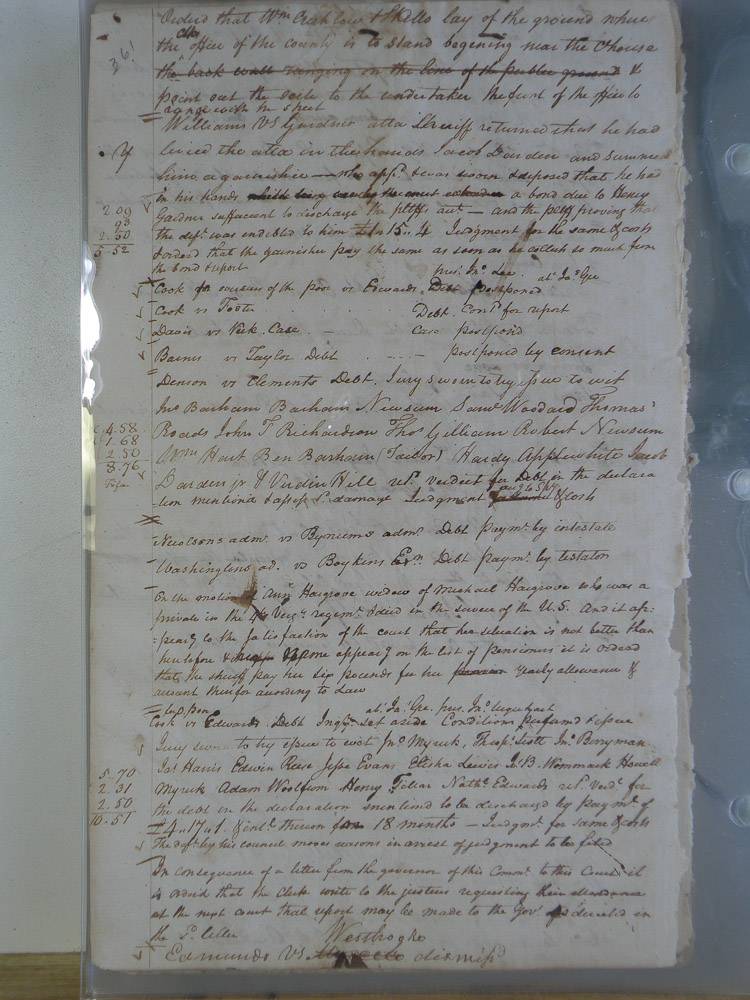 361
Orderd that Wm Crichlow & Kello lay of the ground where
the Clks office of the county is to stand begening near the Chouse
the back wall ranging on the line of the publee ground &
point out the scite to the undertaker the funt of the office to
range with the street
Williams VS Gardner atta Sheriff returned that he had
levied the atta in the hands Jacob Darden and summond
him a garnishee — who appd. & was sworn & deposed that he had
in his hands a bond due to Henry
Gardner sufficient to discharge the pltffs acct — and the pltff proving that
the deft. was indebted to him 15..4 Judgment for the same & costs
& orderd that the garnishee pay the same as soon as he collects so much from
the bond & report
2.09
93
2.50
5.52
pres. Jno. Lee. at. Ja.s Gee
Cook for overseers of the poor vs Edwards Debt postponed
Cook vs Foster Debt. Contd for report
Davis vs Case — Case postpond
Barnes vs Taylor Debt — postponed by consent
Denson vs Clements Debt. Jury sworn to try issue to wit
Jno Barham Barham Newsum Saml Woodard Thomas
Roads John T Richardson Thos Gilliam Robert Newsum
Wm Hart Ben Barham (Taclor) Hardy Applewhite Jacob
Darden jr & Verdin Hill retd. verdict for Debt in the declara
tion mentiond & assess 1d. damage Judgment & costs
4.58
1.68
2.50
8.76
Newsons admr. vs Bynums admr. Debt paymt. by intestate
Washingtons ad. vs Boykins Exn. Debt paymt. by testator
On the motion of Ann Hargrove widow of Michael Hargrove who was a
private in the 4th Virga. regimt. & died in the service of the U.S. And it ap-
-pearg to the satisfaction of the court that her situation is not better than
heretofore & appearg on the list of pensioners it is ordered
that the sheriff pay her six pounds for her yearly allowance &
account therefor according to Law
at. Ja.s Gee. pres. Jno. Urquhart
Cook vs Edwards Debt Inqy. set aside Conditions performd & issue
Jury sworn to try issue to wit Jno. Myrick, Thos. Scott Jno. Berryman
Jas Harris Edwin Reese Jesse Evans Elisha Lewis Jr. B. Wommack Howell
Myrick Adam Woolfum Henry Nathl. Edwards retd. Verdt. for
the debt in the declaration mentiond to be discharged by paymt. of
£4..17..1. & intt. thereon for 18 months — Judgmt. for same & costs
The deft. by his council moves reasons in arrest of judgment to be filed
5.70
2.31
2.50
10.51
In consequence of a letter from the governor of this Commo. to this Court it
is orderd that the Clerk write to the justices requesting their attendance
at the next court that report may be made to the Govr. as directed in
the sd. letter
Westbrooke
Edmunds VS dismissd